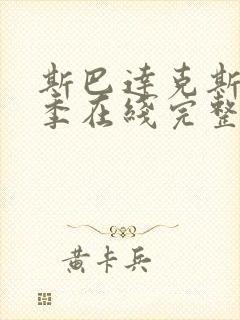 斯巴达克斯
季在线完整
黄卡兵